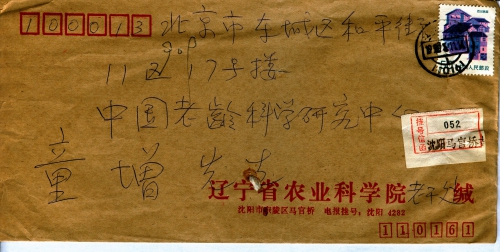 100013 北京市东城区和平街
11区17号楼
中国老龄科学研究中心
童增 先生
中国人民邮政
挂号信函
052
沈阳马官桥
辽宁省农业科学院 老干处 缄
沈阳市东陵区马官桥 电报挂号:沈阳 4282
110161